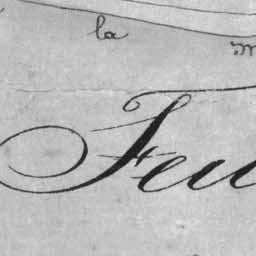 la m
Feu